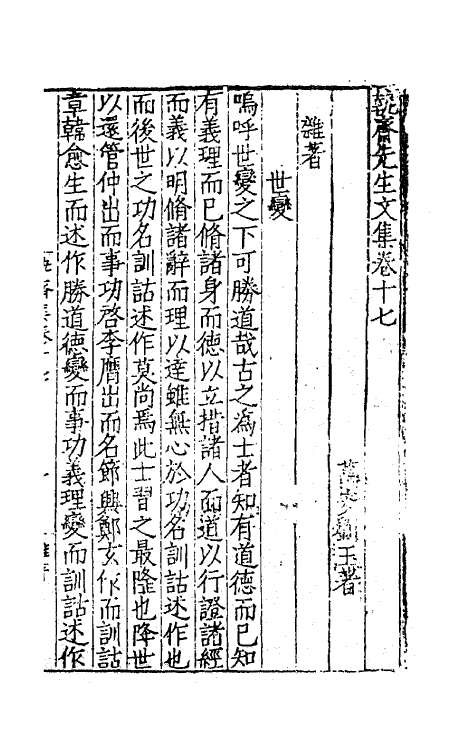 齋先生文集卷十七
玉著
雜著
世變
嗚呼世變之下可勝道哉古之為士者知有道德而已知
有義理而已脩諸身而德以立措諸人而道以行證諸經
而義以明脩諸辭而理以達雖無心於功名訓詁述作也
而後世之功名訓詁述作莫尚焉此士習之最隆也降世
以還管仲出而事功啓李膺出而名節興鄭玄作而訓詁
章韓愈生而述作勝道德變而事功義理變而訓詁述作